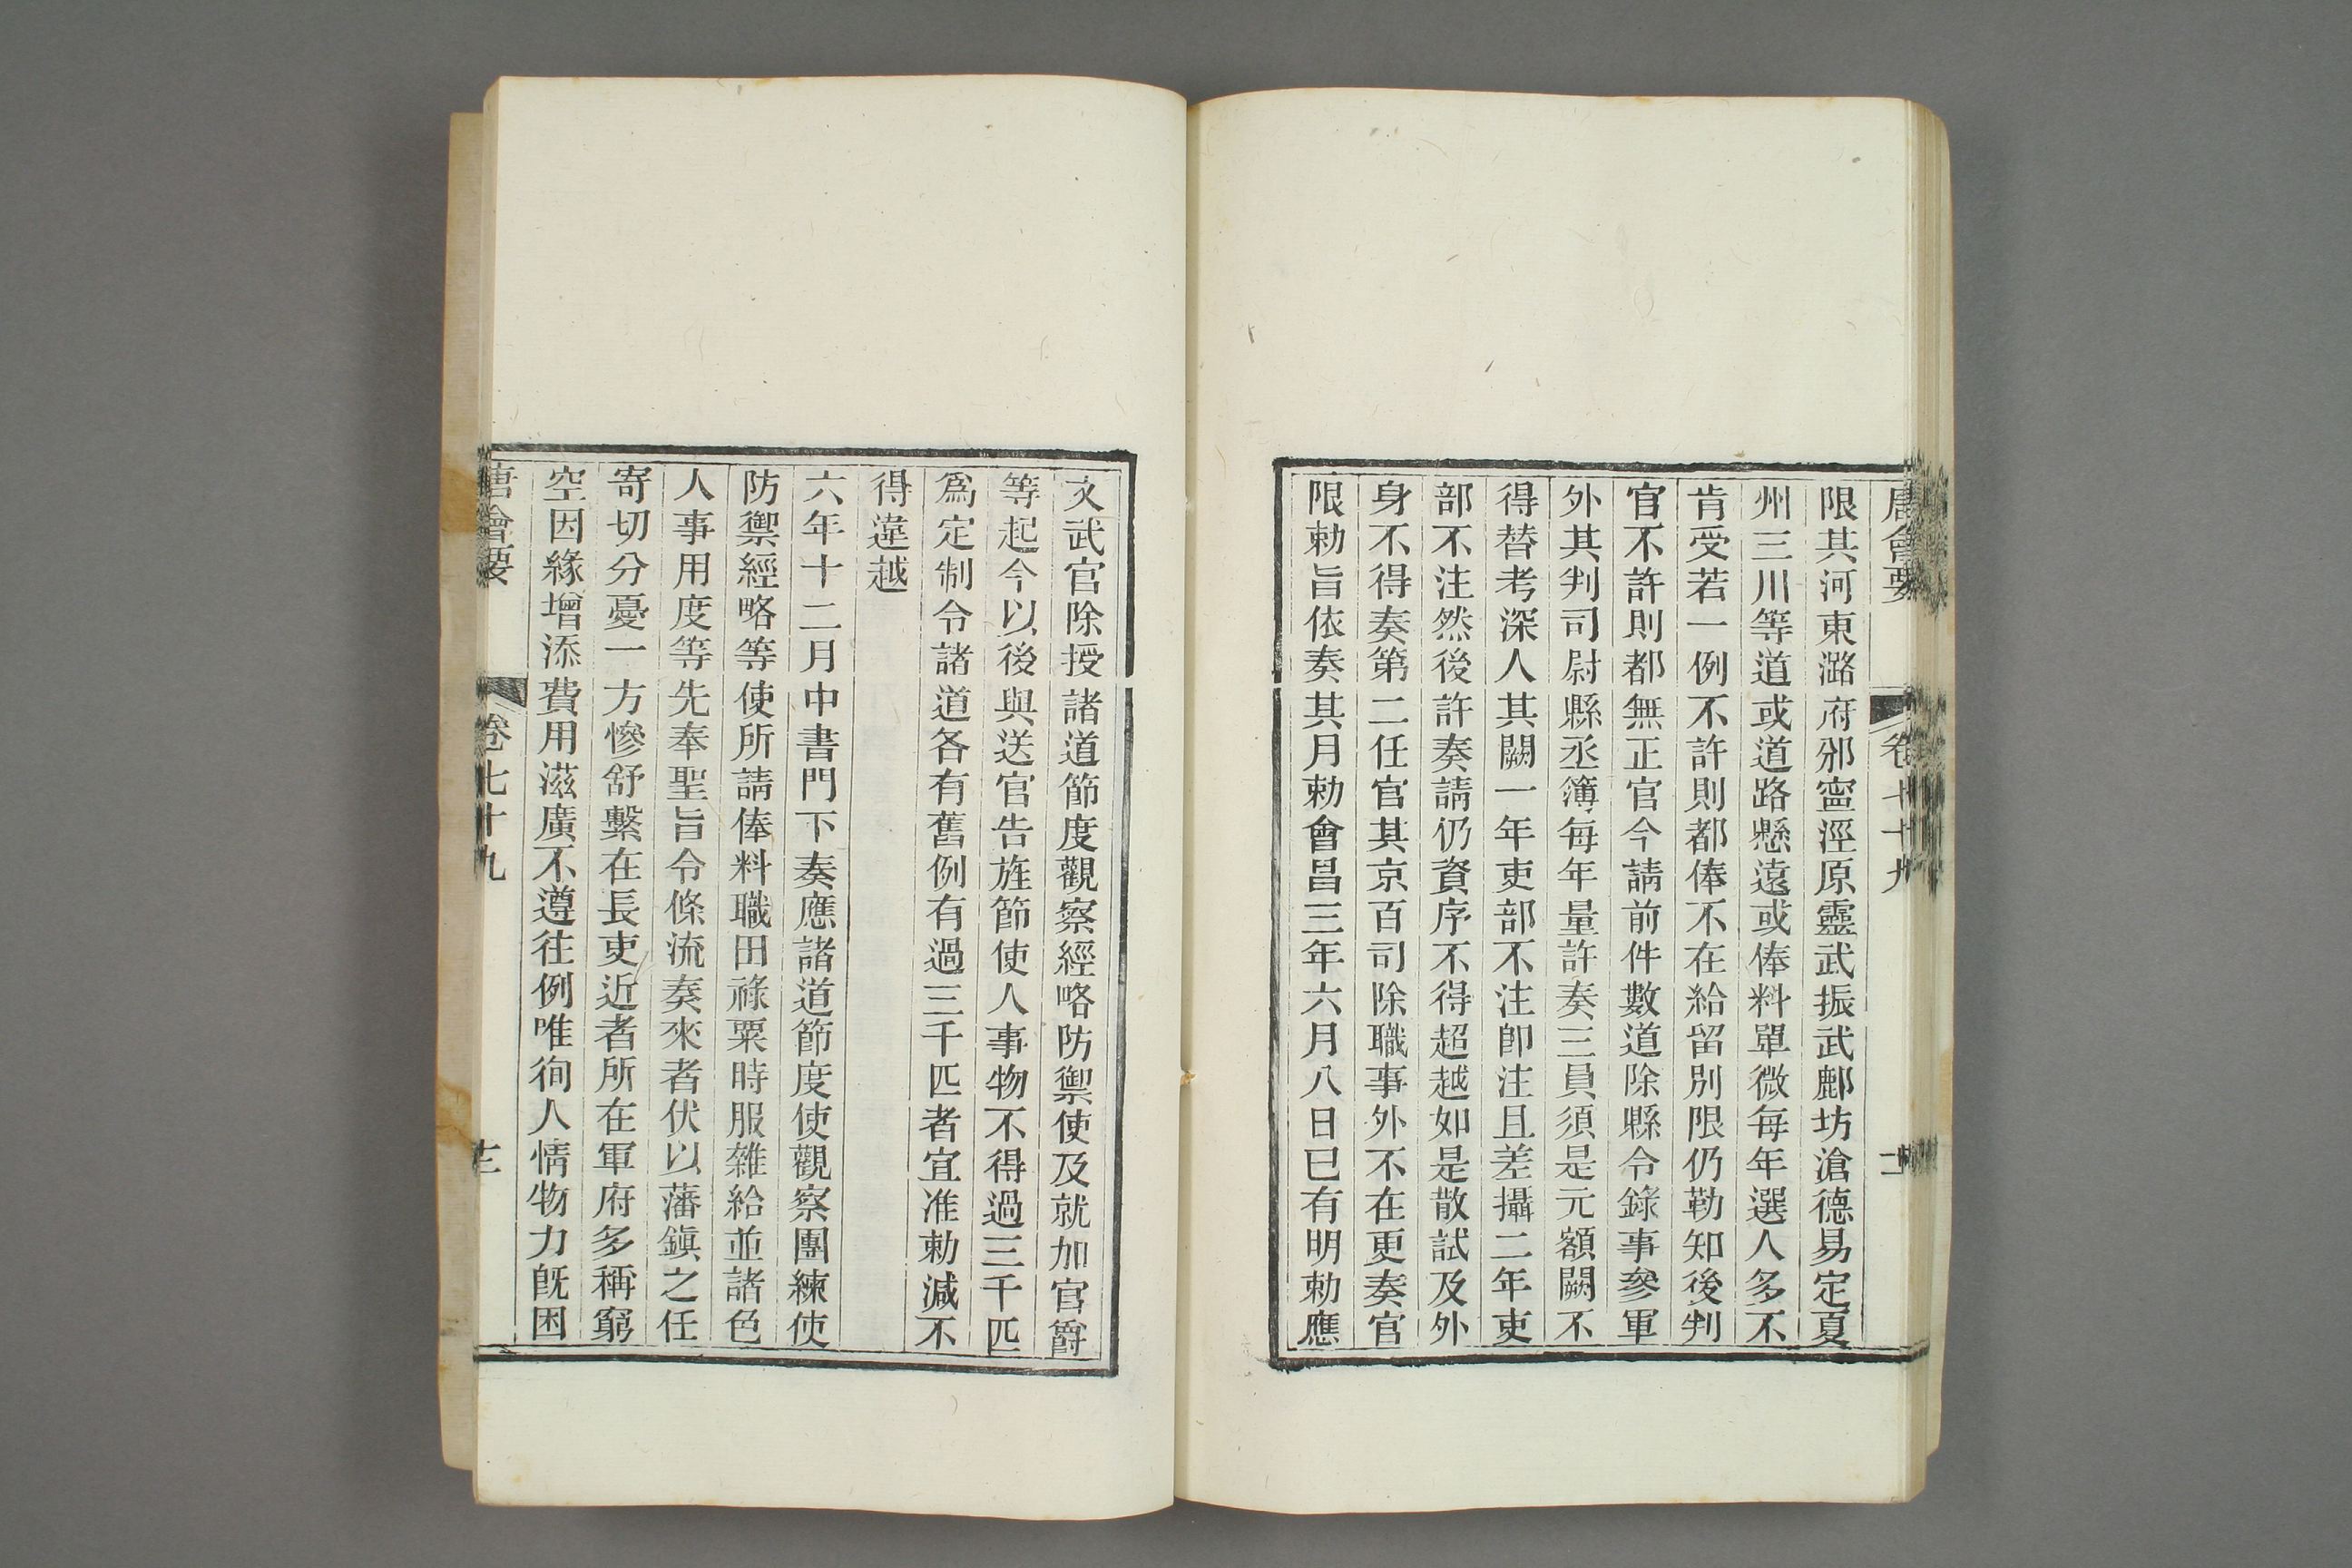 唐會要 卷七十九
限其河東潞府邠寧涇原靈武振武鄜坊滄德易定夏
州三川等道或道路懸遠或俸料單微每年選人多不
肯受若一例不許則都俸不在給留別限仍勒知後判
官不許則都無正官今請前件數道除縣令錄事參軍
外其判司尉縣丞簿每年量許奏三員須是元額闕不
得替考深人其闕一年吏部不注卽注且差攝二年吏
部不注然後許奏請仍資序不得超越如是散試及外
身不得奏第二任官其京百司除職事外不在更奏官
限勅旨依奏其月勅會昌三年六月八日已有明勅應
文武官除授諸道節度觀察經略防禦使及就加官爵
等起今以後與送官告旌節使人事物不得過三千匹
爲定制令諸道各有舊例有過三千匹者宜准勅減不
得違越
六年十二月中書門下奏應諸道節度使觀察團練使
防禦經略等使所請俸料職田祿粟時服雜給並諸色
人事用度等先奉聖旨令條流奏來者伏以藩鎭之任
寄切分憂一方慘舒繫在長吏近者所在軍府多稱窮
空因緣增添費用滋廣不遵往例唯徇人情物力旣困
唐會要 卷七十九